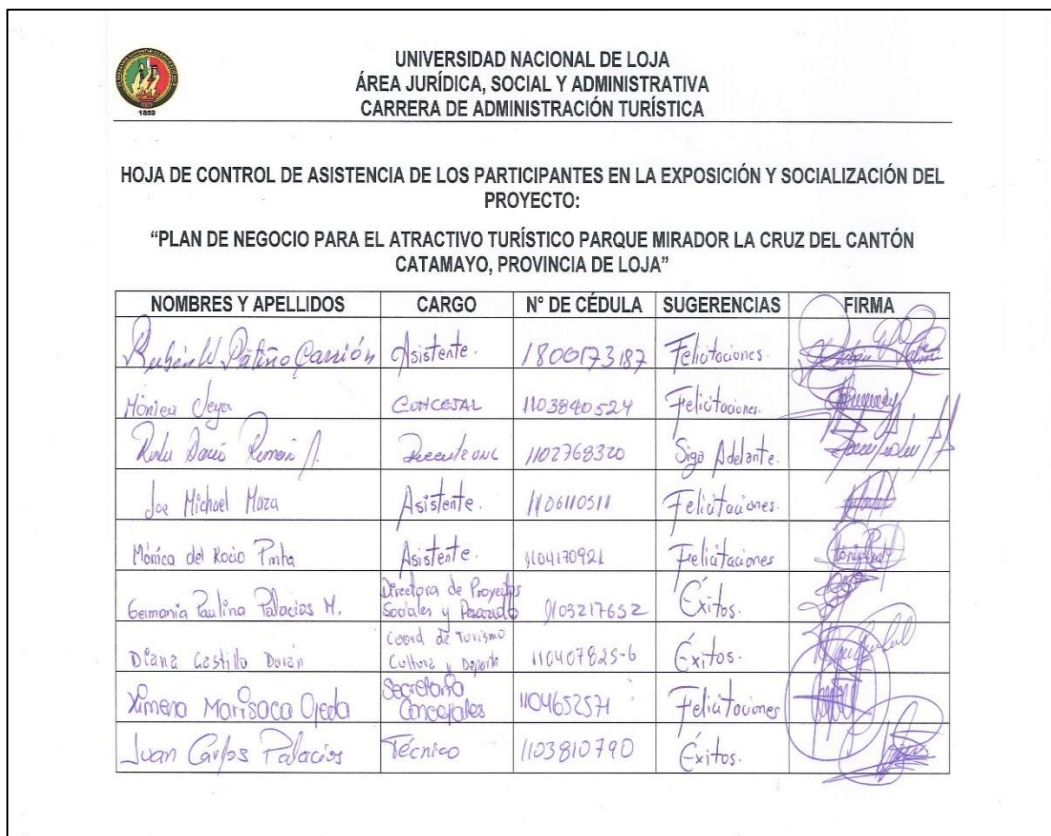 UNIVERSIDAD NACIONAL DE LOJA
ÁREA JURÍDICA, SOCIAL Y ADMINISTRATIVA
CARRERA DE ADMINISTRACIÓN TURÍSTICA
1859
HOJA DE CONTROL DE ASISTENCIA DE LOS PARTICIPANTES EN LA EXPOSICIÓN Y SOCIALIZACIÓN DEL
PROYECTO:
“PLAN DE NEGOCIO PARA EL ATRACTIVO TURÍSTICO PARQUE MIRADOR LA CRUZ DEL CANTÓN
CATAMAYO, PROVINCIA DE LOJA”
NOMBRES Y APELLIDOS CARGO N° DE CÉDULA SUGERENCIAS FIRMA
Rubén W Patiño Carrión Asistente. 1800173187 Felicitaciones.
Mónica CONCEJAL 1103840524 Felicitaciones.
Darío Román 1102768320 Siga Adelante.
Joe Michael Maza Asistente. 1106110511 Felicitaciones.
Mónica del Rocio Asistente. 1104170921 Felicitaciones
Germania Paulina Palacios M. Directora de Proyectos
Sociales y 1103217652 Éxitos.
Diana Castillo Durán Coord de Turismo
Cultura y Deporte 110407825-6 Éxitos.
Ximena Marisaca Ojeda Secretaria
Concejales 1104652571 Felicitaciones
Juan Carlos Palacios Técnico 1103810790 Éxitos.